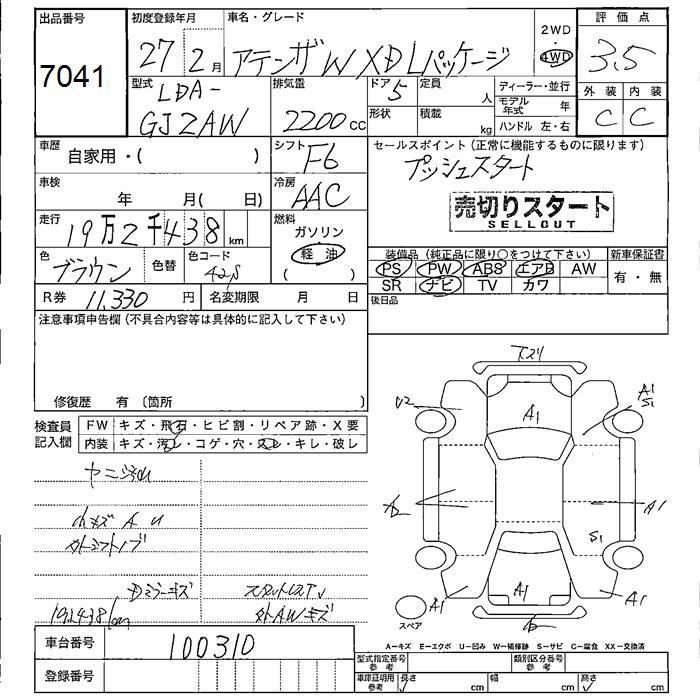 出品番号
7041
初度登録年月
27 2 月
車名・グレード
アテンザW XDLパッケージ
2WD
・
4WD
評価点
3.5
外装 内装
C C
型式
LDA-
GJ2AW
排気量
2200 cc
ドア 5
定員
人
形状
積載
kg
ディーラー・並行
モデル年式 年
ハンドル 左・右
車歴
自家用・( )
シフト
F6
車検
年 月( 日)
冷房
AAC
走行
19万2千438 km
燃料
ガソリン
軽油
( )
色
ブラウン
色替
色コード
42S
R券 11,330 円
名変期限 月 日
セールスポイント(正常に機能するものに限ります)
プッシュスタート
売切りスタート
SELLOUT
装備品(純正品に限り○をつけて下さい)
PS PW ABS エアB AW
SR ナビ TV カワ
新車保証書
有・無
後日品
注意事項申告欄(不具合内容等は具体的に記入して下さい)
修復歴 有(箇所
検査員
記入欄
FW キズ・飛石・ヒビ割・リペア跡・X要
内装 キズ・汚レ・コゲ・穴・スレ・キレ・破レ
小キズ A U
192438km
スタットレスTV
外AWキズ
U2
A1
A1
S1
A2
A1
S1
A1
A1
A1
スペア
車台番号 100310
登録番号
A−キズ E−エクボ U−凹み W−補修跡 S−サビ C−腐食 XX−交換済
型式指定番号
参考
類別区分番号
参考
車庫証明用
参考
長さ cm
幅 cm
高さ cm